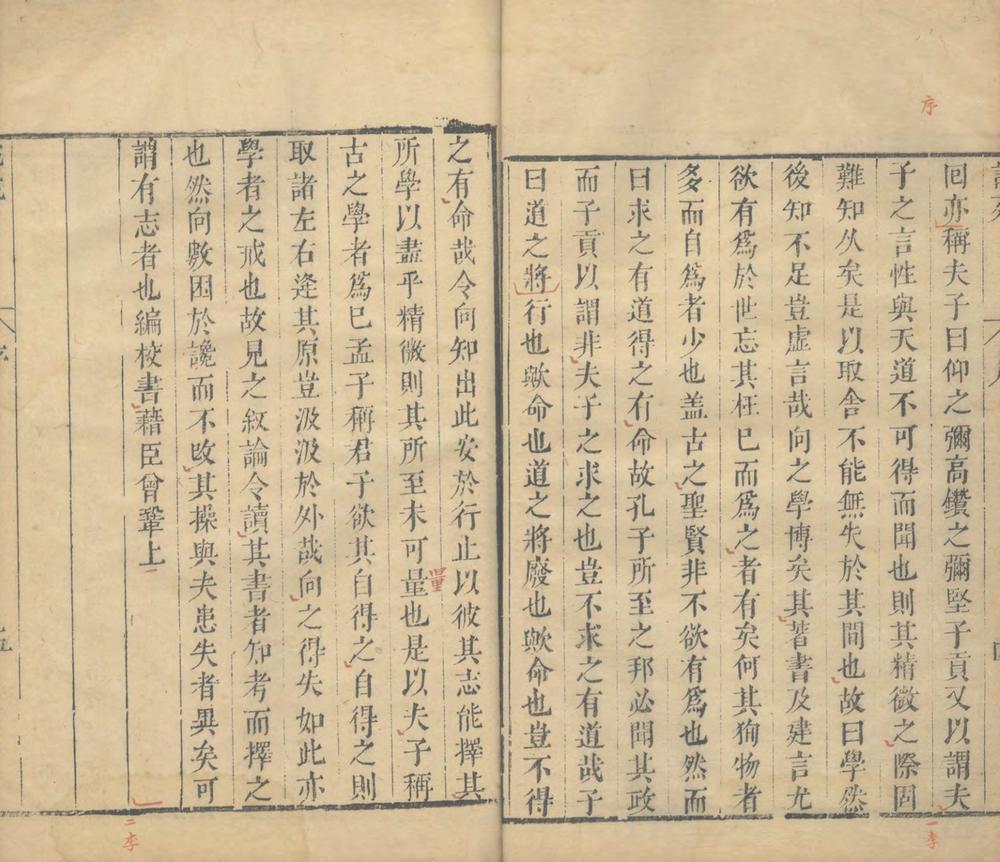 序
回亦稱夫子曰仰之彌高鑽之彌堅子貢又以謂夫
子之言性與天道不可得而聞也則其精微之際固
難知久矣是以取舍不能無失於其間也故曰學然
後知不足豈虛言哉向之學博矣其著書及建言尤
欲有爲於世忘其枉已而爲之者有矣何其狥物者
多而自爲者少也盖古之聖賢非不欲有爲也然而
曰求之有道得之有命故孔子所至之邦必聞其政
而子貢以謂非夫子之求之也豈不求之有道哉子
曰道之將行也歟命也道之將廢也歟命也豈不得
一李
之有命哉令向知出此安於行止以彼其志能擇其
所學以盡乎精微則其所至未可量也是以夫子稱
量
古之學者爲巳孟子稱君子欲其自得之自得之則
取諸左右逢其原豈汲汲於外哉向之得失如此亦
學者之戒也故見之敘論令讀其書者知考而擇之
也然向數困於讒而不改其操與夫患失者異矣可
謂有志者也編校書藉臣曾鞏上
二李